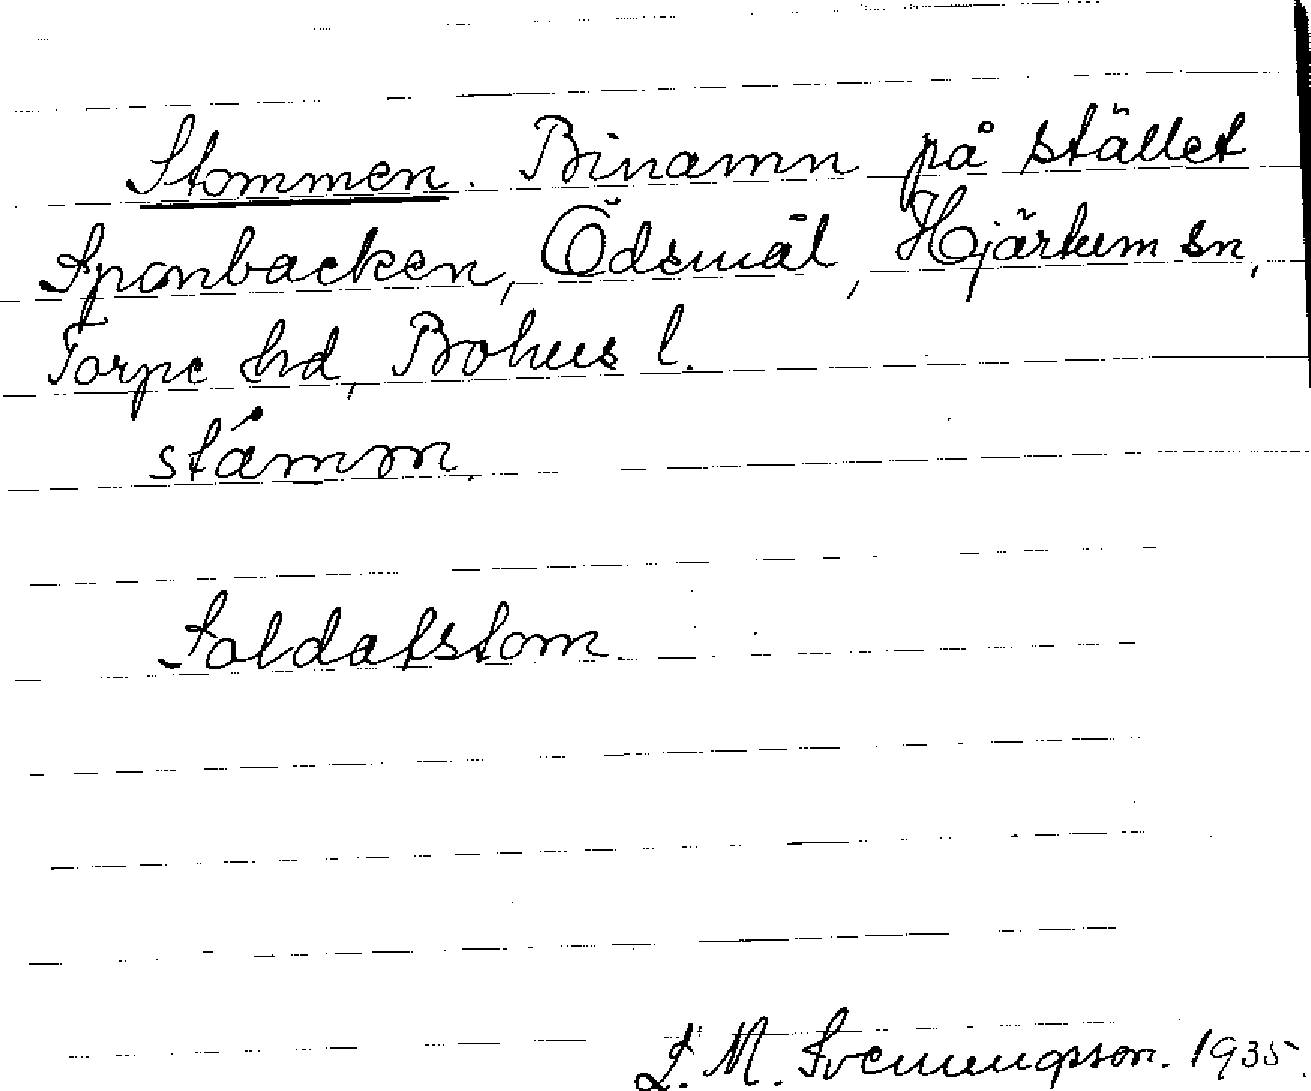 Stommen. Binamn på stället
Sponbacken, Ödsmål, Hjärtum sn,
Torpe hd, Bohus l.
stámm.
Soldatstom
S. M. Svenungsson. 1935.